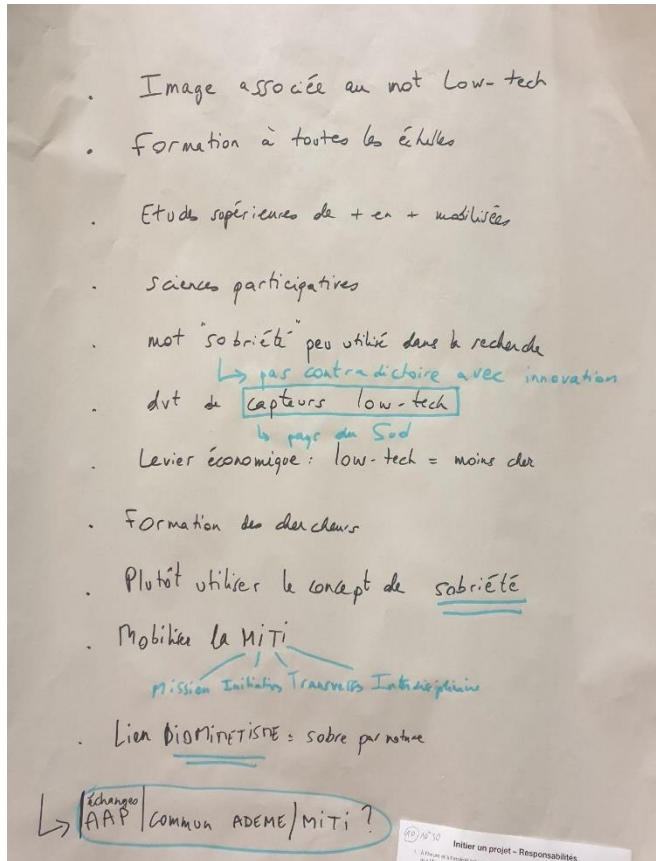 . Image associée au mot Low-tech
. Formation à toutes les échelles
. Etudes supérieures de + en + mobilisées
. Sciences participatives
. mot "sobriété" peu utilisé dans la recherche
↳ pas contradictoire avec innovation
. dvt de capteurs low-tech
↳ pays du Sud
. Levier économique : low-tech = moins cher
. Formation des chercheurs
. Plutôt utiliser le concept de sobriété
. Mobiliser la MITI
Mission Initiatives Transverses Interdisciplinaire
. Lien BIOMIMETISME = sobre par nature
↳ échanges
AAP commun ADEME/MITI ?
Initier un projet – Responsabilités